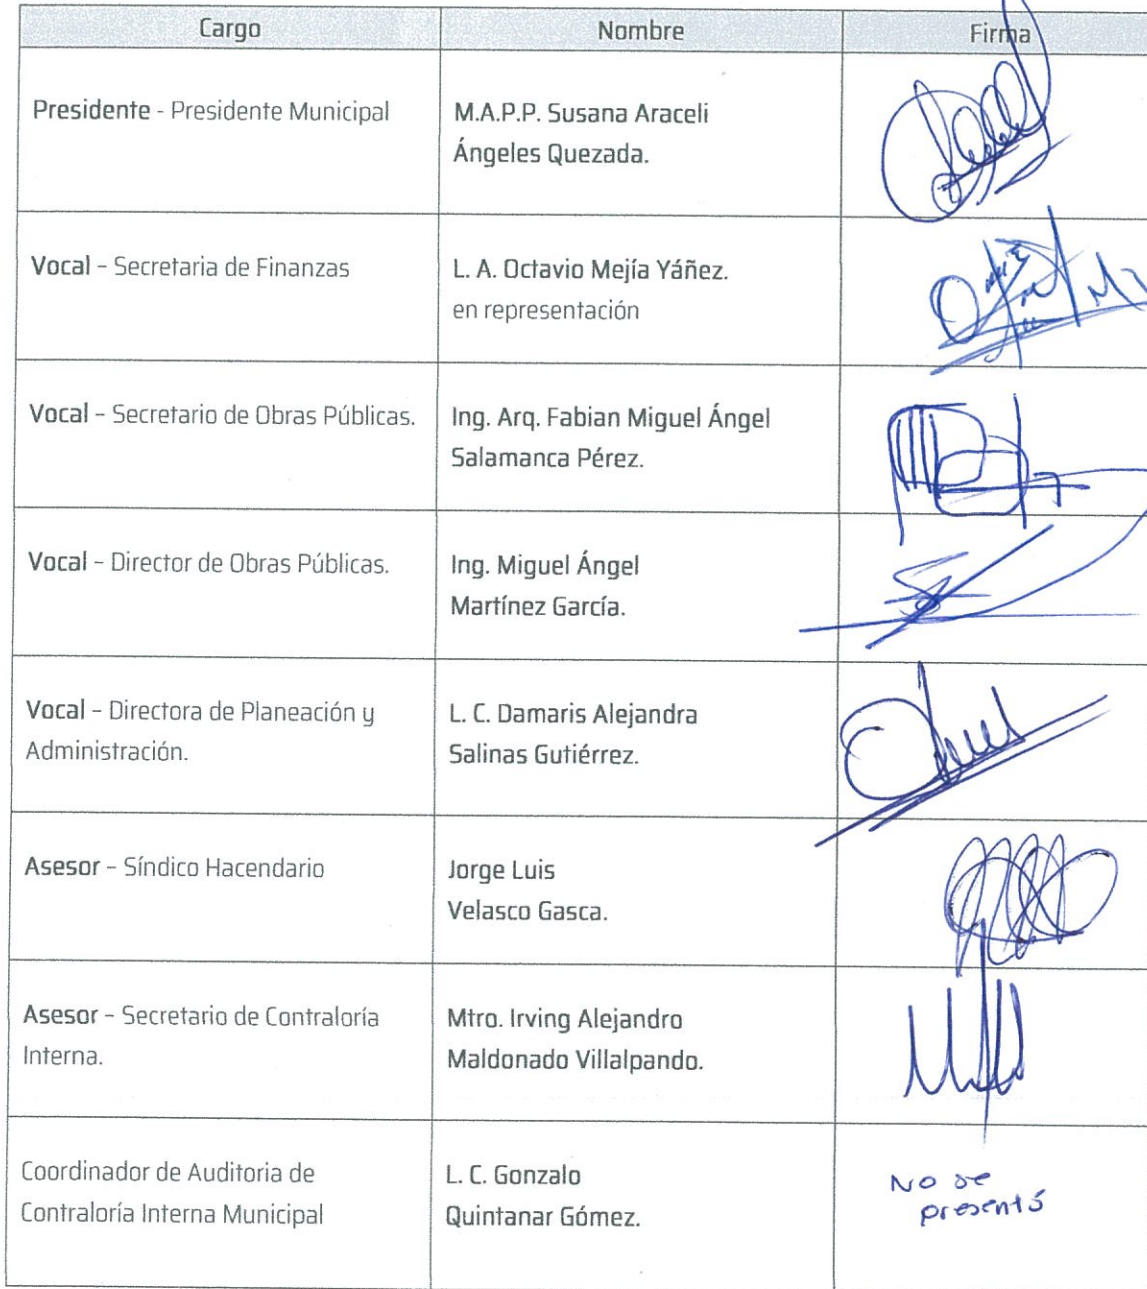 Cargo Nombre Firma
Presidente - Presidente Municipal
M.A.P.P. Susana Araceli
Ángeles Quezada.
Vocal – Secretaria de Finanzas
L. A. Octavio Mejía Yáñez.
en representación
Vocal – Secretario de Obras Públicas.
Ing. Arq. Fabian Miguel Ángel
Salamanca Pérez.
Vocal – Director de Obras Públicas.
Ing. Miguel Ángel
Martínez García.
Vocal – Directora de Planeación y
Administración.
L. C. Damaris Alejandra
Salinas Gutiérrez.
Asesor – Síndico Hacendario
Jorge Luis
Velasco Gasca.
Asesor – Secretario de Contraloría
Interna.
Mtro. Irving Alejandro
Maldonado Villalpando.
Coordinador de Auditoria de
Contraloría Interna Municipal
L. C. Gonzalo
Quintanar Gómez.
No se
presentó